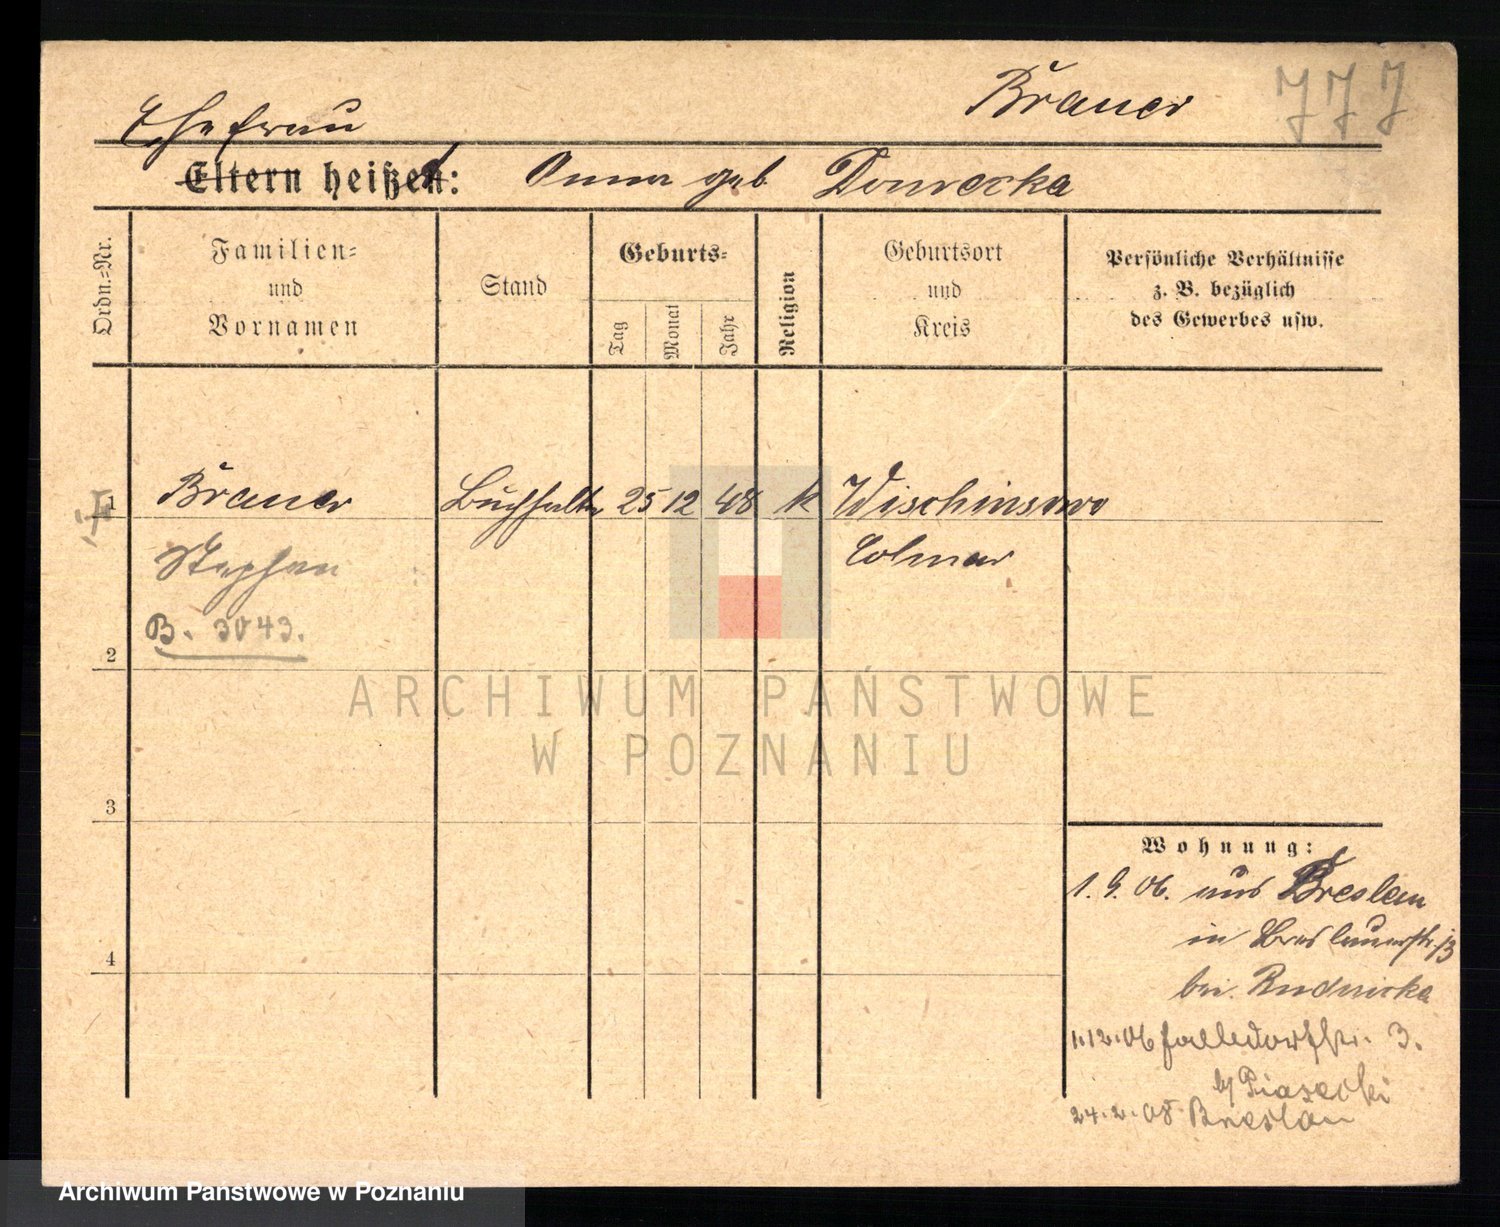 Brauer
777
Ehefrau
Eltern heißen: Anna geb.
Ordn.-Nr.
Familien-
und
Vornamen
Stand
Geburts-
Tag
Monat
Jahr
Religion
Geburtsort
und
Kreis
Persönliche Verhältnisse
z. B. bezüglich
des Gewerbes usw.
1
Brauer
Buchhalter
25
12
48
k
Wischinsowo
Colmar
Stephan
B. 3043.
2
3
4
Wohnung:
1. 9. 06. aus Breslau
in Breslauerstr.
bei Rudnicka
1.12.06 3.
b/ Piasecki
24.2.08 Breslau
ARCHIWUM PAŃSTWOWE
W POZNANIU
Archiwum Państwowe w Poznaniu